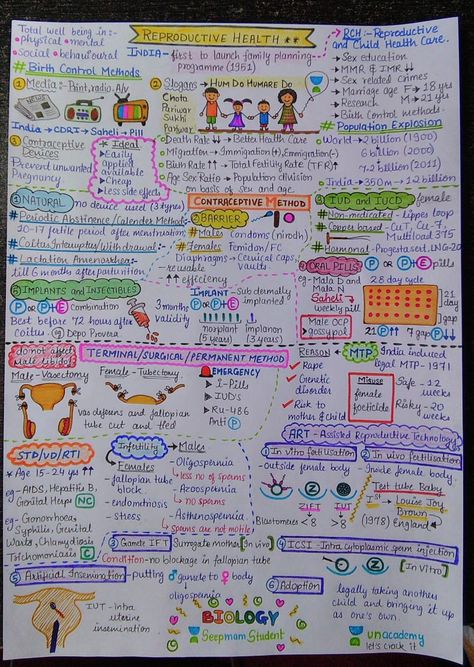 REPRODUCTIVE HEALTH **
Total well being in:-
• physical • mental
• social • behavioural
INDIA- first to launch family planning
programme (1951)
RCH:- Reproductive
and Child Health Care.
→ Sex education
→ MMR & IMR ↓↓
→ Sex related crimes
→ Marriage age F → 18 yrs
M → 21 yrs
→ Research
→ Birth Control methods
# Birth Control Methods
① Media:- Print, radio, A/v
② Slogans → HUM DO HUMARE DO
Chota
Parivar
Sukhi
Parivar
India → CDRI → Saheli → Pill
③ Contraceptive
Devices
Prevent unwanted
Pregnancy
* Ideal
→ Easily
applied
→ available
→ Cheap
→ Less side effects
→ Death Rate ↓↓ → Better Health Care
→ Migration → Immigration(+), Emmigration(-)
→ Birth Rate ↑↑ → Total Fertility Rate (TFR)
→ Age Sex Ratio → Population division
on basis of sex and age.
# Population Explosion
World → 2 billion (1900)
6 billion (2000)
7.2 billion (2011)
India → 350 m → 1.2 billion
CONTRACEPTIVE METHOD
① NATURAL no device used (3 types)
# Periodic Abstinence/Calender Method
10-17 fertile period after menstruation
# Coitus Interruptus/Withdrawal:-
# Lactation Amenorrhea:-
till 6 months after parturition
② BARRIER
# Males Condoms (nirodh)
# Females Femidon/FC
Diaphragms → Cervical Caps,
vaults
→ reusable
↑↑ efficiency
③ IUD and IUCD female
# Non-medicated - lippes loop
# Copper based - CuT, Cu-7,
Multiload 375
# Harmonal - Progestasert, LNG-20
④ ORAL PILLS P or P+E pills
eg- Mala D and
Mala N
Saheli
weekly
pill
28 day cycle
Male OCP
→ gossypol
21 day
1 gap
21 P ↑↑ 7 gap P ↓↓
⑤ IMPLANTS AND INJECTIBLES
P or P+E Combination
Best before 72 hours after
coitus eg- Depo Provera
3 months
validity
IMPLANT → Sub dermally
P or P+E implanted
norplant (5 years)
implanon (3 years)
do not affect
male libido
TERMINAL/SURGICAL/PERMANENT METHOD
Male-Vasectomy
Female - Tubectomy
Vas deferens and fallopian
tube cut and tied
EMERGENCY
→ i-Pills
→ IUD's
→ Ru-486
Anti P
REASON
→ Rape
→ Genetic
disorder
→ Risk to
mother & child
MTP
India induced
legal MTP-1971
Misuse
female
foeticide
Safe - 12
weeks
Risky - 20
weeks
ART - Assisted Reproductive Technology
STD/VD/RTI
* Age 15-24 yrs ↑↑
eg- AIDS, Hepatitis B,
Genital Herpes NC
eg- Gonorrhoea,
Syphilis, Genital
Warts, Chlamydiosis
Trichomoniasis C
Infertility → Males
→ Females
- fallopian tube
block
- endometriosis
- stress
- Oligospermia
→ less no of sperms
- Azoospermia
→ no sperms
- Asthenospermia
→ Sperms are not motile
① In vitro fertilisation
- outside female body
ZIFT IUT
Blastomeres < 8 > 8
② In vivo fertilisation
Inside female body.
Test tube Baby
Ist → Louise Joy
Brown →
(1978) England
③ Gamete IFT Surrogate mother [In vivo]
Condition - no blockage in fallopian tube
④ ICSI - Intra cytoplasmic sperm injection
[In Vitro]
⑤ Artificial Insemination - putting ♂ gamete to ♀ body
↓ oligospermia
IUT - Intra
uterine
insemination
⑥ Adoption
legally taking another
child and bringing it up
as one's own.
BIOLOGY
Seepmam Student
unacademy
let's crack it